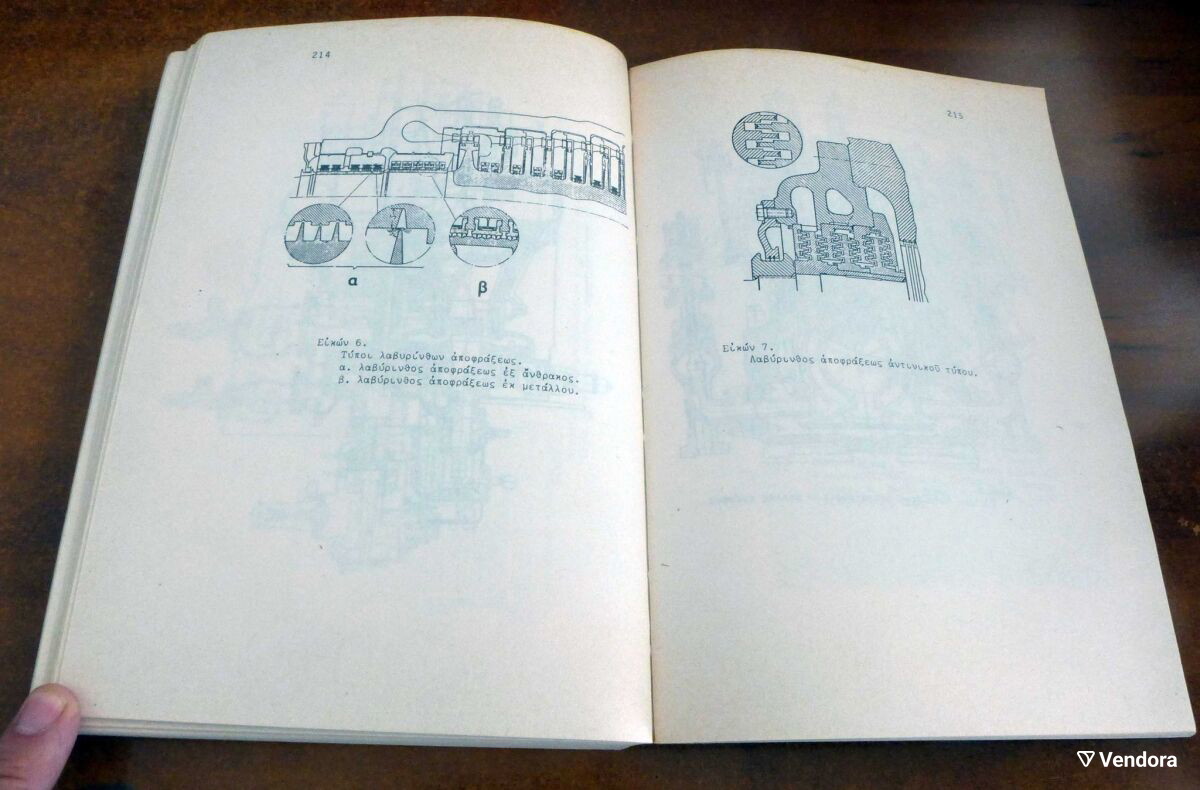 214
α
β
Εἰκών 6.
Τύποι λαβυρίνθων ἀποφράξεως.
α. λαβύρινθος ἀποφράξεως ἐξ ἄνθρακος.
β. λαβύρινθος ἀποφράξεως ἐκ μετάλλου.
215
Εἰκών 7.
Λαβύρινθος ἀποφράξεως ἀντινικοῦ τύπου.
Vendora